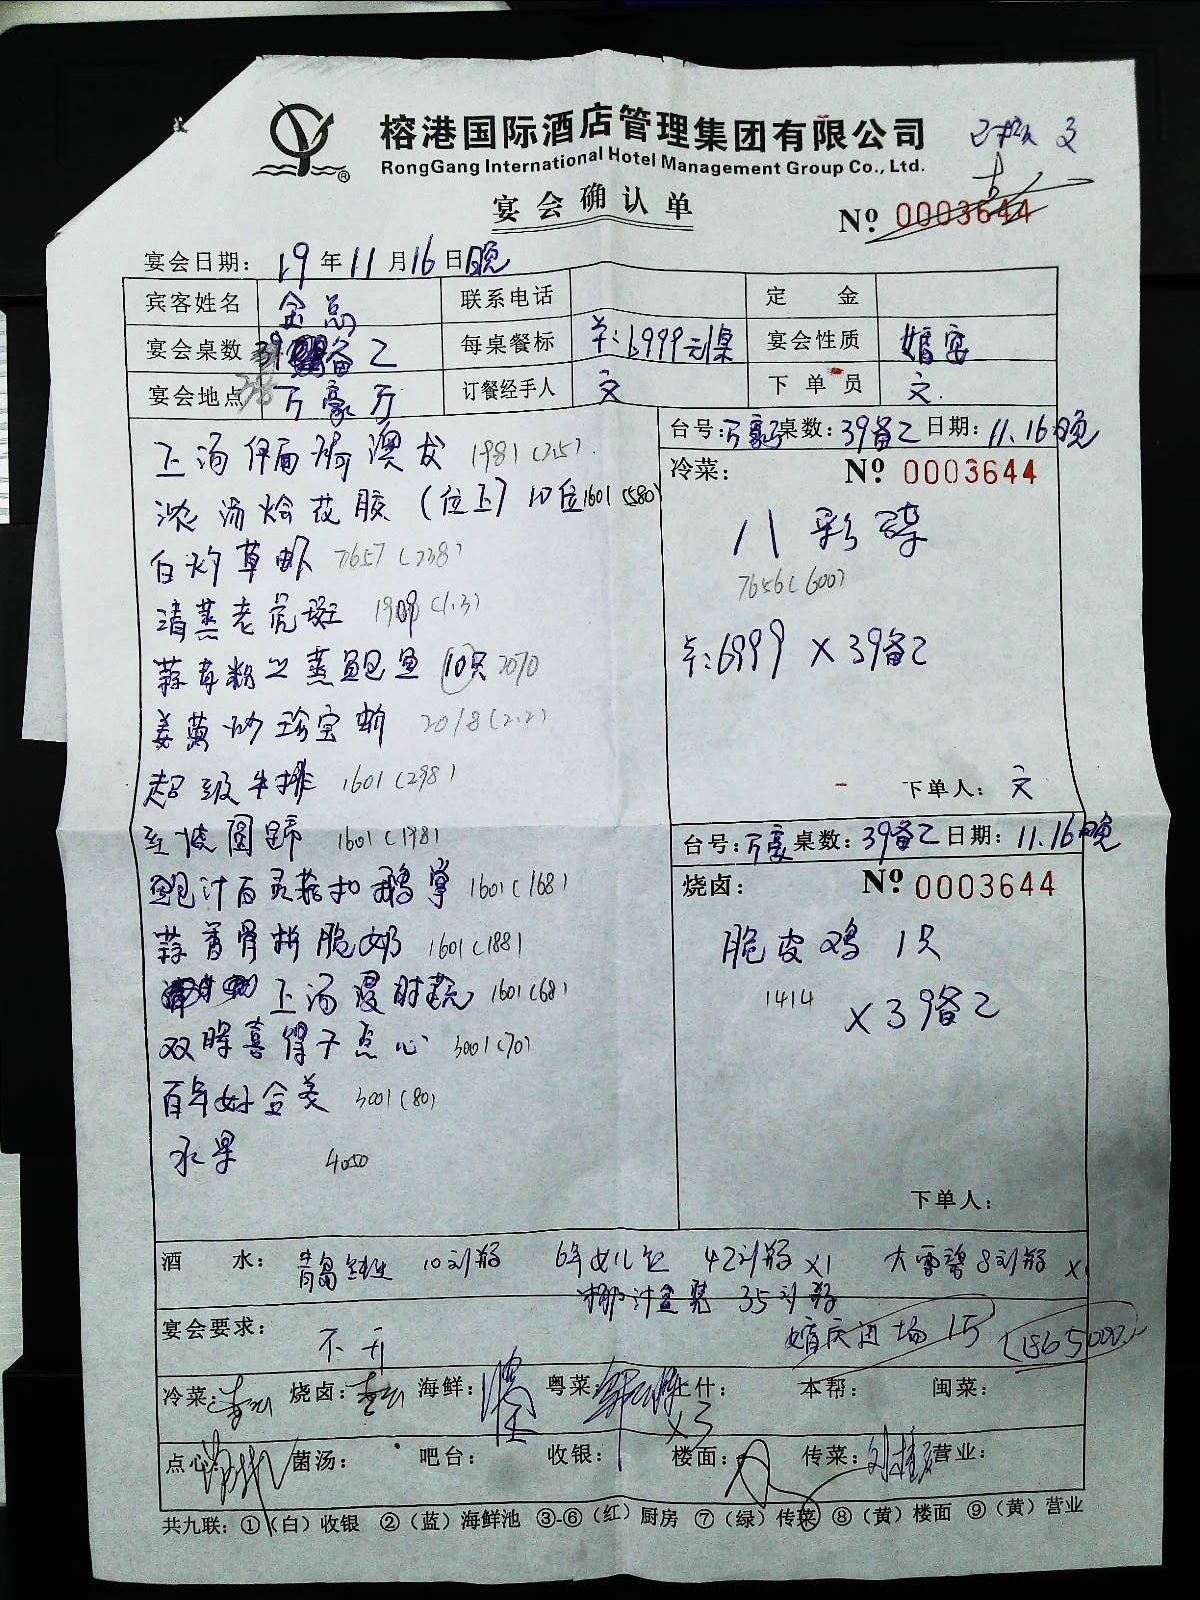 榕港国际酒店管理集团有限公司
RongGang International Hotel Management Group Co., Ltd.
®
宴会确认单
№ 0003644
宴会日期: 19年11月16日晚
宾客姓名 金总 联系电话 定金
宴会桌数 39备2 每桌餐标 单:6999元/桌 宴会性质 婚宴
宴会地点 万豪厅 订餐经手人 文 下单员 文
上汤伊面焗澳龙 1981(2.5)
浓汤烩花胶(位上)10位 1601(580)
白灼草虾 7657(238)
清蒸老虎斑 1909(1.3)
蒜茸粉丝蒸鲍鱼 10只 2070
姜葱炒珍宝蟹 2018(2.2)
超级牛排 1601(298)
红烧圆蹄 1601(198)
鲍汁百灵菇扣鹅掌 1601(168)
蒜香骨拼脆奶 1601(188)
上汤浸时蔬 1601(68)
双晖喜得子点心 3001(70)
百年好合羹 3001(80)
水果 4050
台号:万豪厅 桌数:39备2 日期:11.16晚
冷菜: № 0003644
八彩碟
7656(600)
单:6999 X 39备2
下单人: 文
台号:万豪 桌数:39备2 日期:11.16晚
烧卤: № 0003644
脆皮鸡 1只
1414
X 39备2
下单人:
酒水: 青岛纯生 10元/瓶 6年女儿红 42元/瓶 X1 大雪碧 8元/瓶 X1
椰汁 35元/瓶
宴会要求: 不升 婚庆进场 1万
冷菜: 烧卤: 海鲜: 粤菜: 上什: 本帮: 闽菜:
X3
点心: 菌汤: 吧台: 收银: 楼面: 传菜: 营业:
共九联: ①(白)收银 ②(蓝)海鲜池 ③-⑥(红)厨房 ⑦(绿)传菜 ⑧(黄)楼面 ⑨(黄)营业